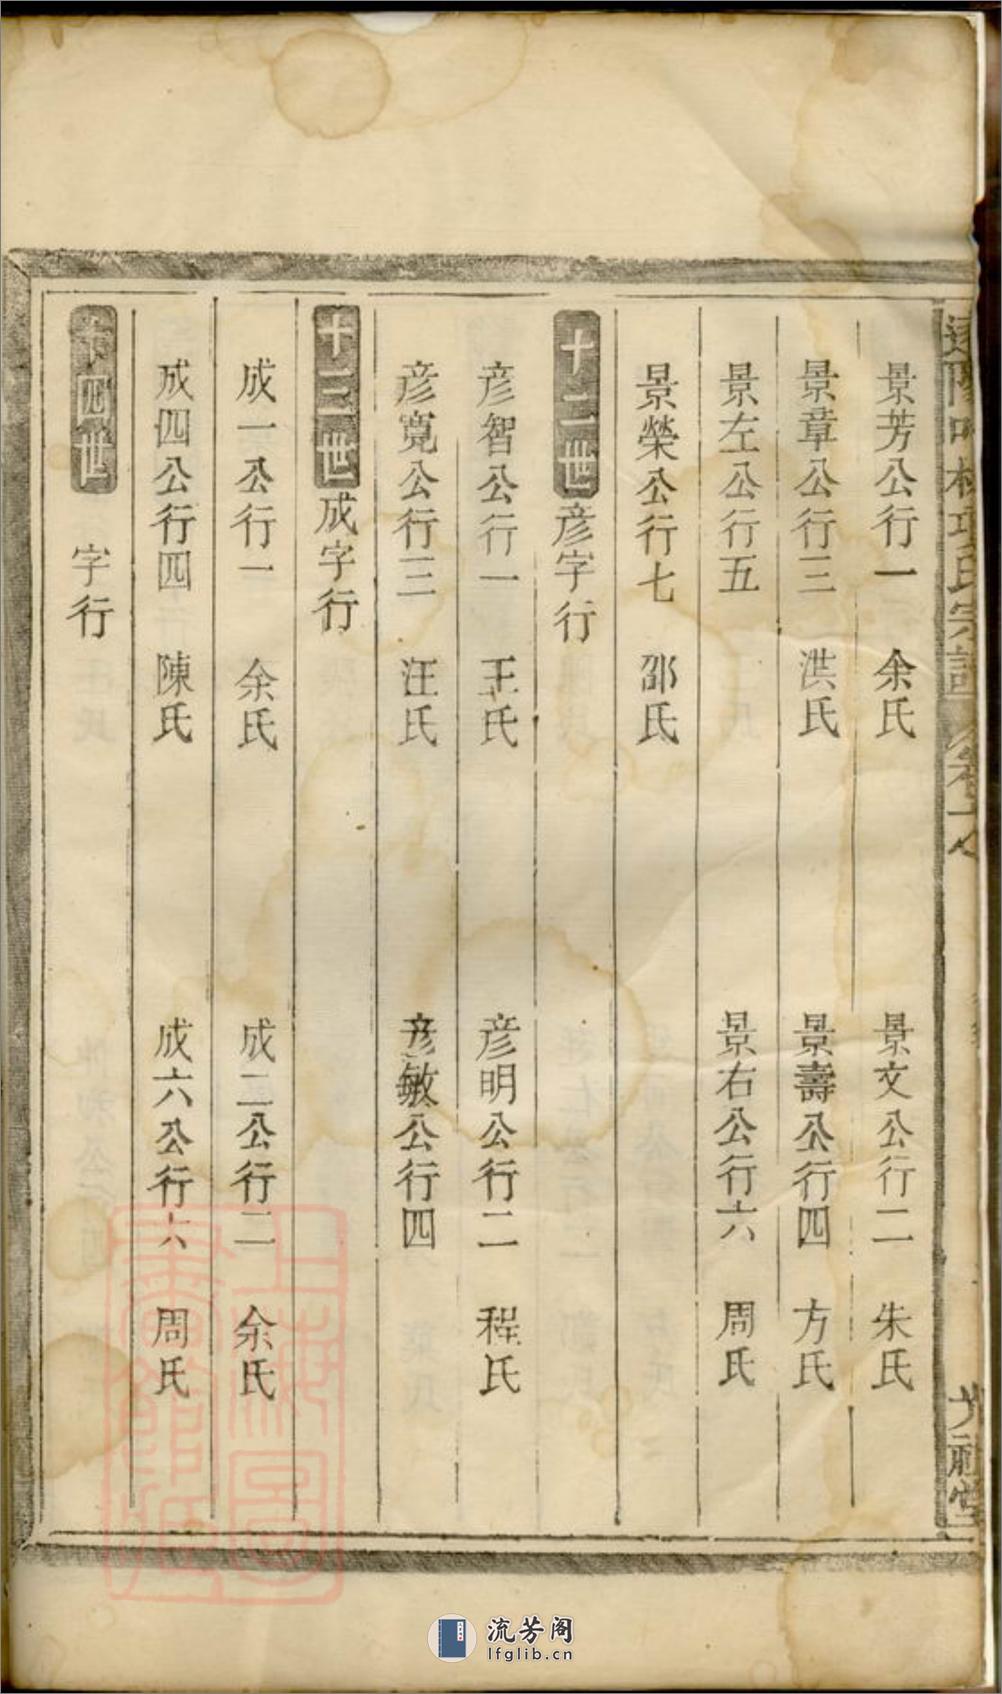 項氏宗譜
景芳公行一 余氏 景文公行二 朱氏
景章公行三 洪氏 景壽公行四 方氏
景左公行五 景右公行六 周氏
景榮公行七 邵氏
十二世 彦字行
彦智公行一 王氏 彦明公行二 程氏
彦寬公行三 汪氏 彦敏公行四
十三世 成字行
成一公行一 余氏 成二公行二 余氏
成四公行四 陳氏 成六公行六 周氏
十四世 字行
上海圖書館藏
流芳阁
lfglib.cn